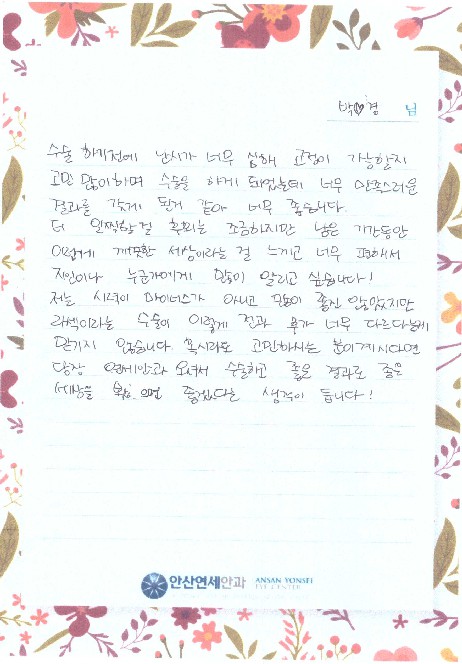 박♡경 님
수술 하기전에 난시가 너무 심해 교정이 가능할지
고민 많이하며 수술을 하게 되었는데 너무 만족스러운
결과를 갖게 된거 같아 너무 좋습니다.
더 일찍할 걸 후회는 조금하지만 남은 기간동안
이렇게 깨끗한 세상이라는 걸 느끼고 너무 편해서
지인이나 누군가에게 많이 알리고 싶습니다!
저는 시력이 마이너스가 아니고 많이 좋진 않았지만
라섹이라는 수술이 이렇게 전과 후가 너무 다르다는게
믿기지 않습니다 혹시라도 고민하시는 분이계시다면
당장 연세안과 오셔서 수술하고 좋은 결과로 좋은
세상을 으면 좋겠다는 생각이 듭니다!
안산연세안과 ANSAN YONSEI EYE CENTER